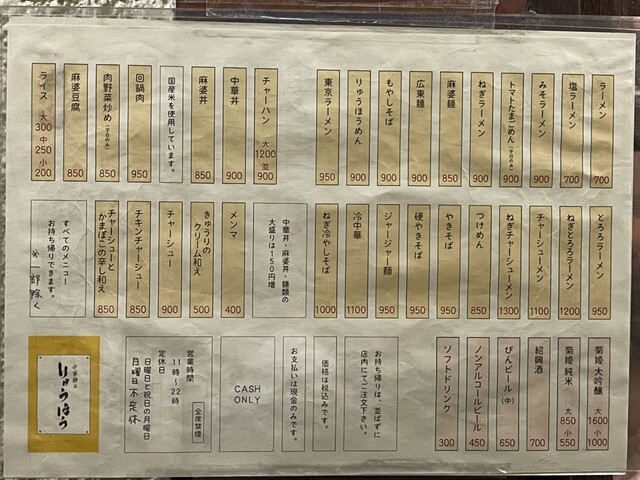 ラーメン 700
塩ラーメン 700
みそラーメン 900
トマトたまごめん(平日のみ) 900
ねぎラーメン 900
麻婆麺 850
広東麺 900
もやしそば 900
りゅうほうめん 900
東京ラーメン 950
チャーハン 大1200 並900
中華丼 900
麻婆丼 850
国産米を使用しています。
回鍋肉 950
肉野菜炒め(平日のみ) 850
麻婆豆腐 850
ライス 大300 中250 小200
とろろラーメン 950
ねぎとろろラーメン 1200
チャーシューメン 1100
ねぎチャーシューメン 1300
つけめん 850
やきそば 950
硬やきそば 950
ジャージャー麺 950
冷中華 1100
ねぎ冷やしそば 1000
中華丼・麻婆丼・麺類の
大盛りは150円増
メンマ 400
きゅうりの
クリーム和え 500
チャーシュー 900
チキンチャーシュー 850
チャーシューと
かまぼこの辛し和え 850
すべてのメニュー
お持ち帰りできます。
※一部除く
菊姫 大吟醸 大1600 小1000
菊姫 純米 大850 小550
紹興酒 700
びんビール(中) 650
ノンアルコールビール 450
ソフトドリンク 300
お持ち帰りは、並ばずに
店内にてご注文下さい。
価格は税込みです。
お支払いは現金のみです。
CASH
ONLY
営業時間
11時〜22時
全席禁煙
定休日
日曜日と祝日の月曜日
月曜日不定休
りゅうほう